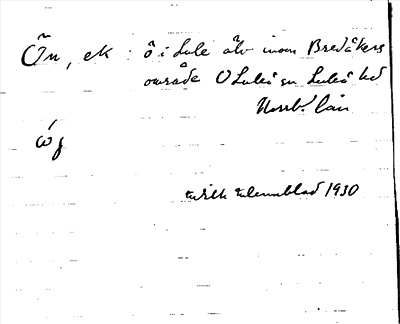 Ön, ek : ö i Lule älv inom Bredåkers
område Ö Luleå sn Luleå hd
Norrb. län
ẃg
1930